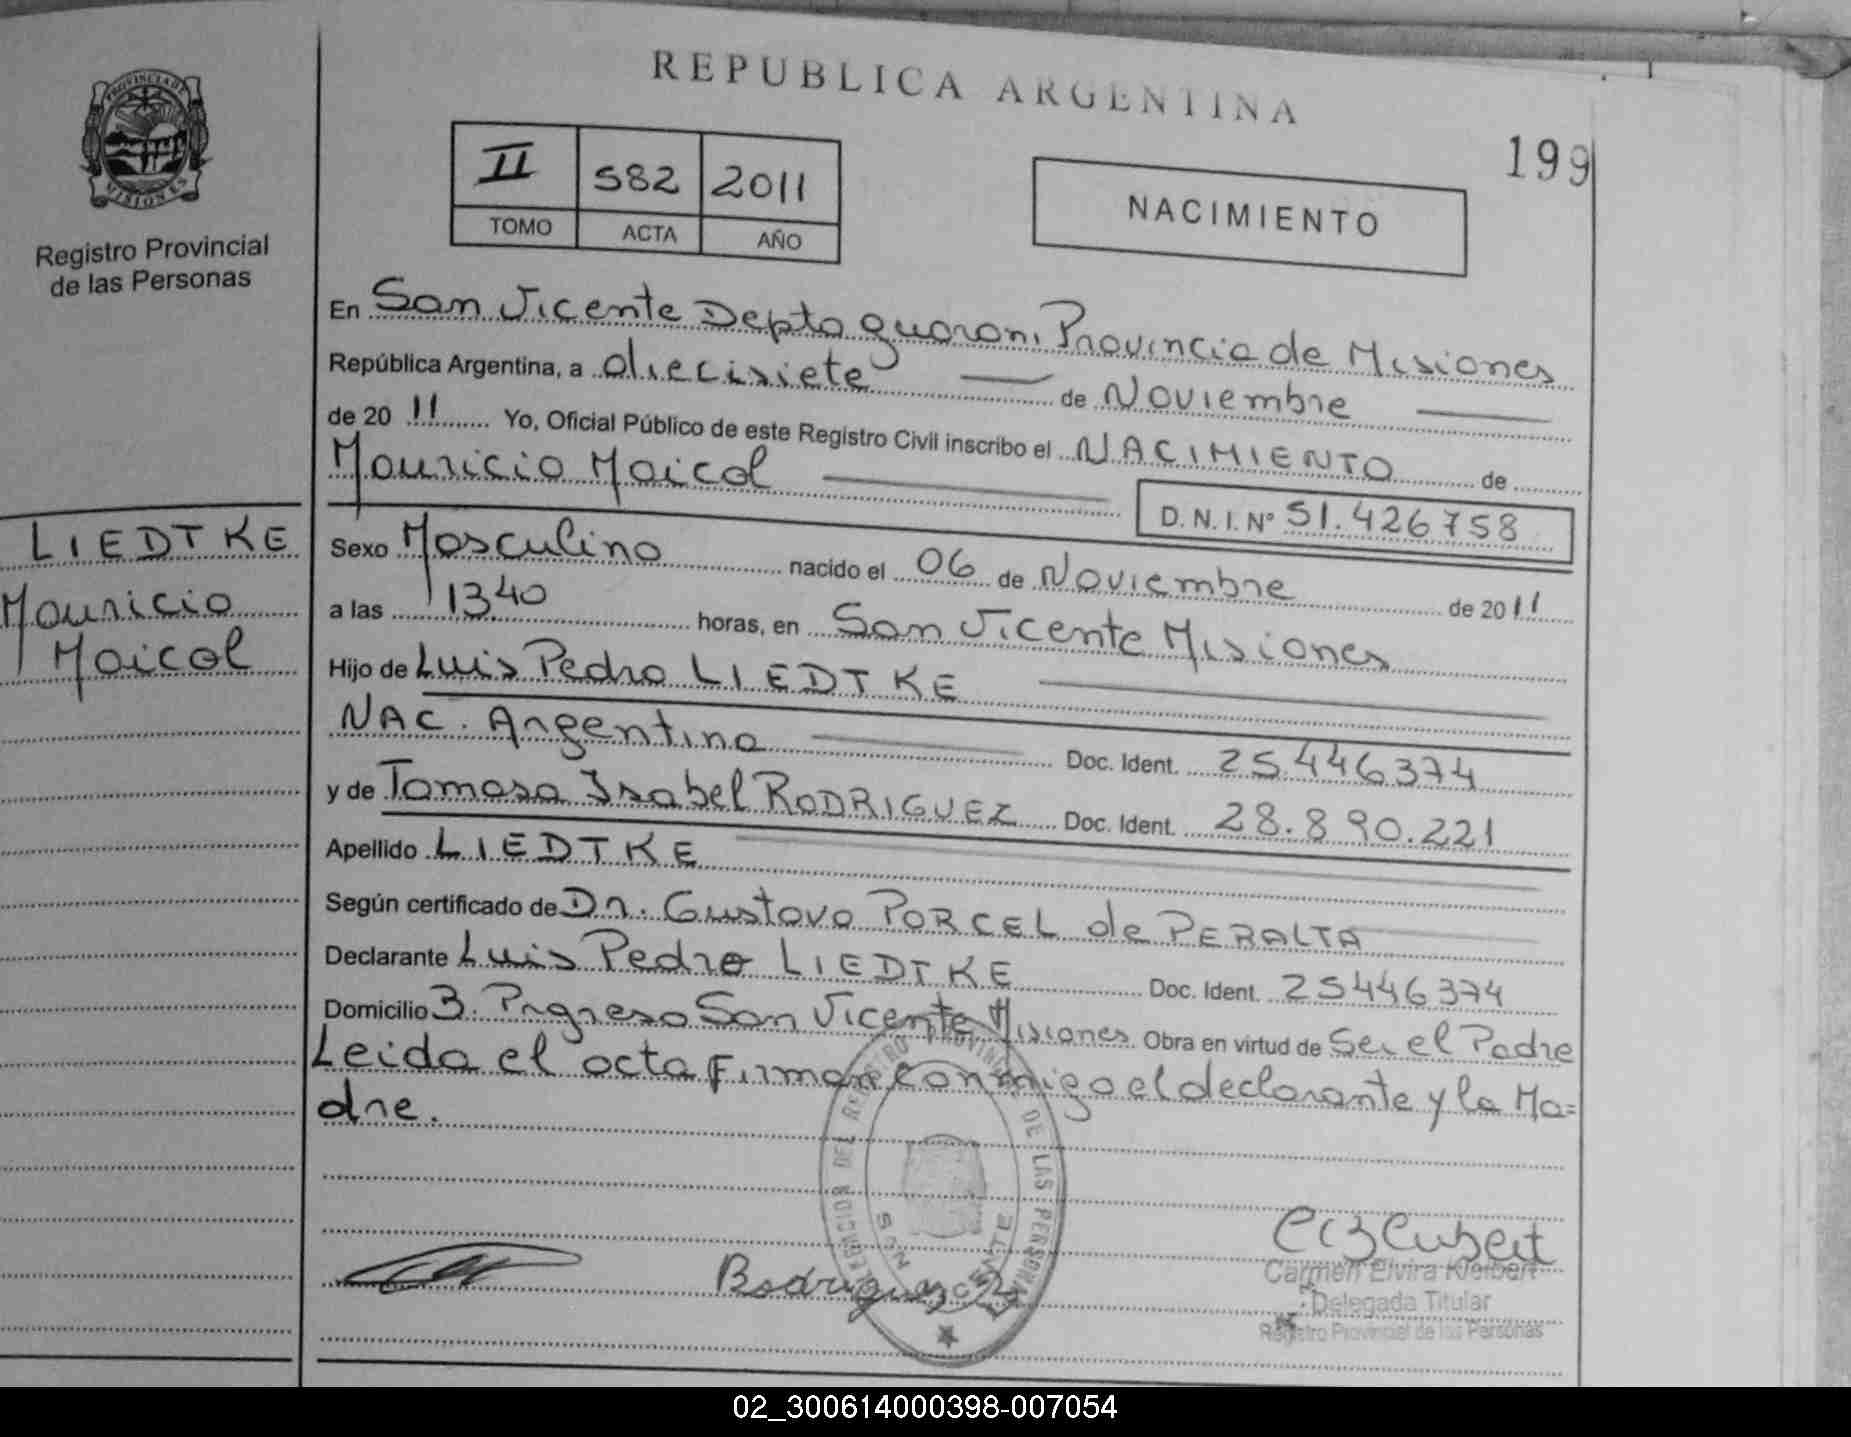 REPUBLICA ARGENTINA
199
PROVINCIA DE MISIONES
Registro Provincial
de las Personas
II 582 2011
TOMO ACTA AÑO
NACIMIENTO
En San Vicente Depto guarani Provincia de Misiones
República Argentina, a diecisiete de Noviembre
de 20 11 Yo, Oficial Público de este Registro Civil inscribo el NACIMIENTO de
Mauricio Maicol
D.N.I. Nº 51.426758
LIEDTKE
Mauricio
Maicol
Sexo Masculino nacido el 06 de Noviembre de 20 11
a las 13.40 horas, en San Vicente Misiones
Hijo de Luis Pedro LIEDTKE
NAC. Argentina Doc. Ident. 25.446374
y de Tomasa Isabel RODRIGUEZ Doc. Ident. 28.890.221
Apellido LIEDTKE
Según certificado de Dr. Gustavo PORCEL de PERALTA
Declarante Luis Pedro LIEDTKE Doc. Ident. 25446374
Domicilio B. Progreso San Vicente Misiones Obra en virtud de Ser el Padre
Leida el acta Firman conmigo el declarante y la Ma=
dre.
REGISTRO PROVINCIAL DE LAS PERSONAS
SAN VICENTE
Carmen Elvira Kleibert
Delegada Titular
Registro Provincial de las Personas
02_300614000398-007054